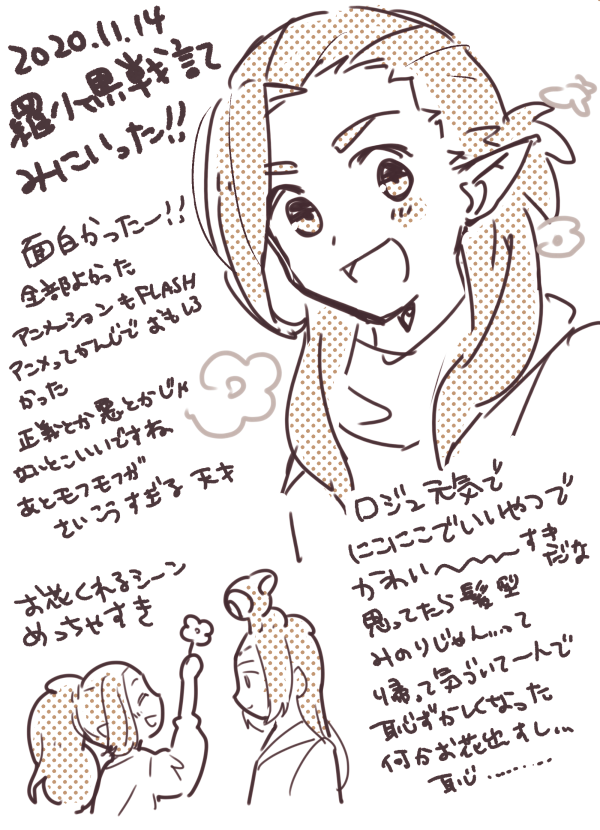 2020.11.14
羅小黒戦記
みにいった!!
面白かったー!!
全部よかった
アニメーションもFLASH
アニメってかんじで おもしろ
かった
正義とか悪とかじゃ
ないとこいいですね
あとモフモフが
さいこうすぎる 天才
ロジュ元気で
にこにこでいいやつで
かわい〜〜〜すき
だな
思ってたら髪型
みのりじゃん…って
帰って気づいてーんで
恥ずかしくなった
何かお花出すし…
恥………
お花くれるシーン
めっちゃすき